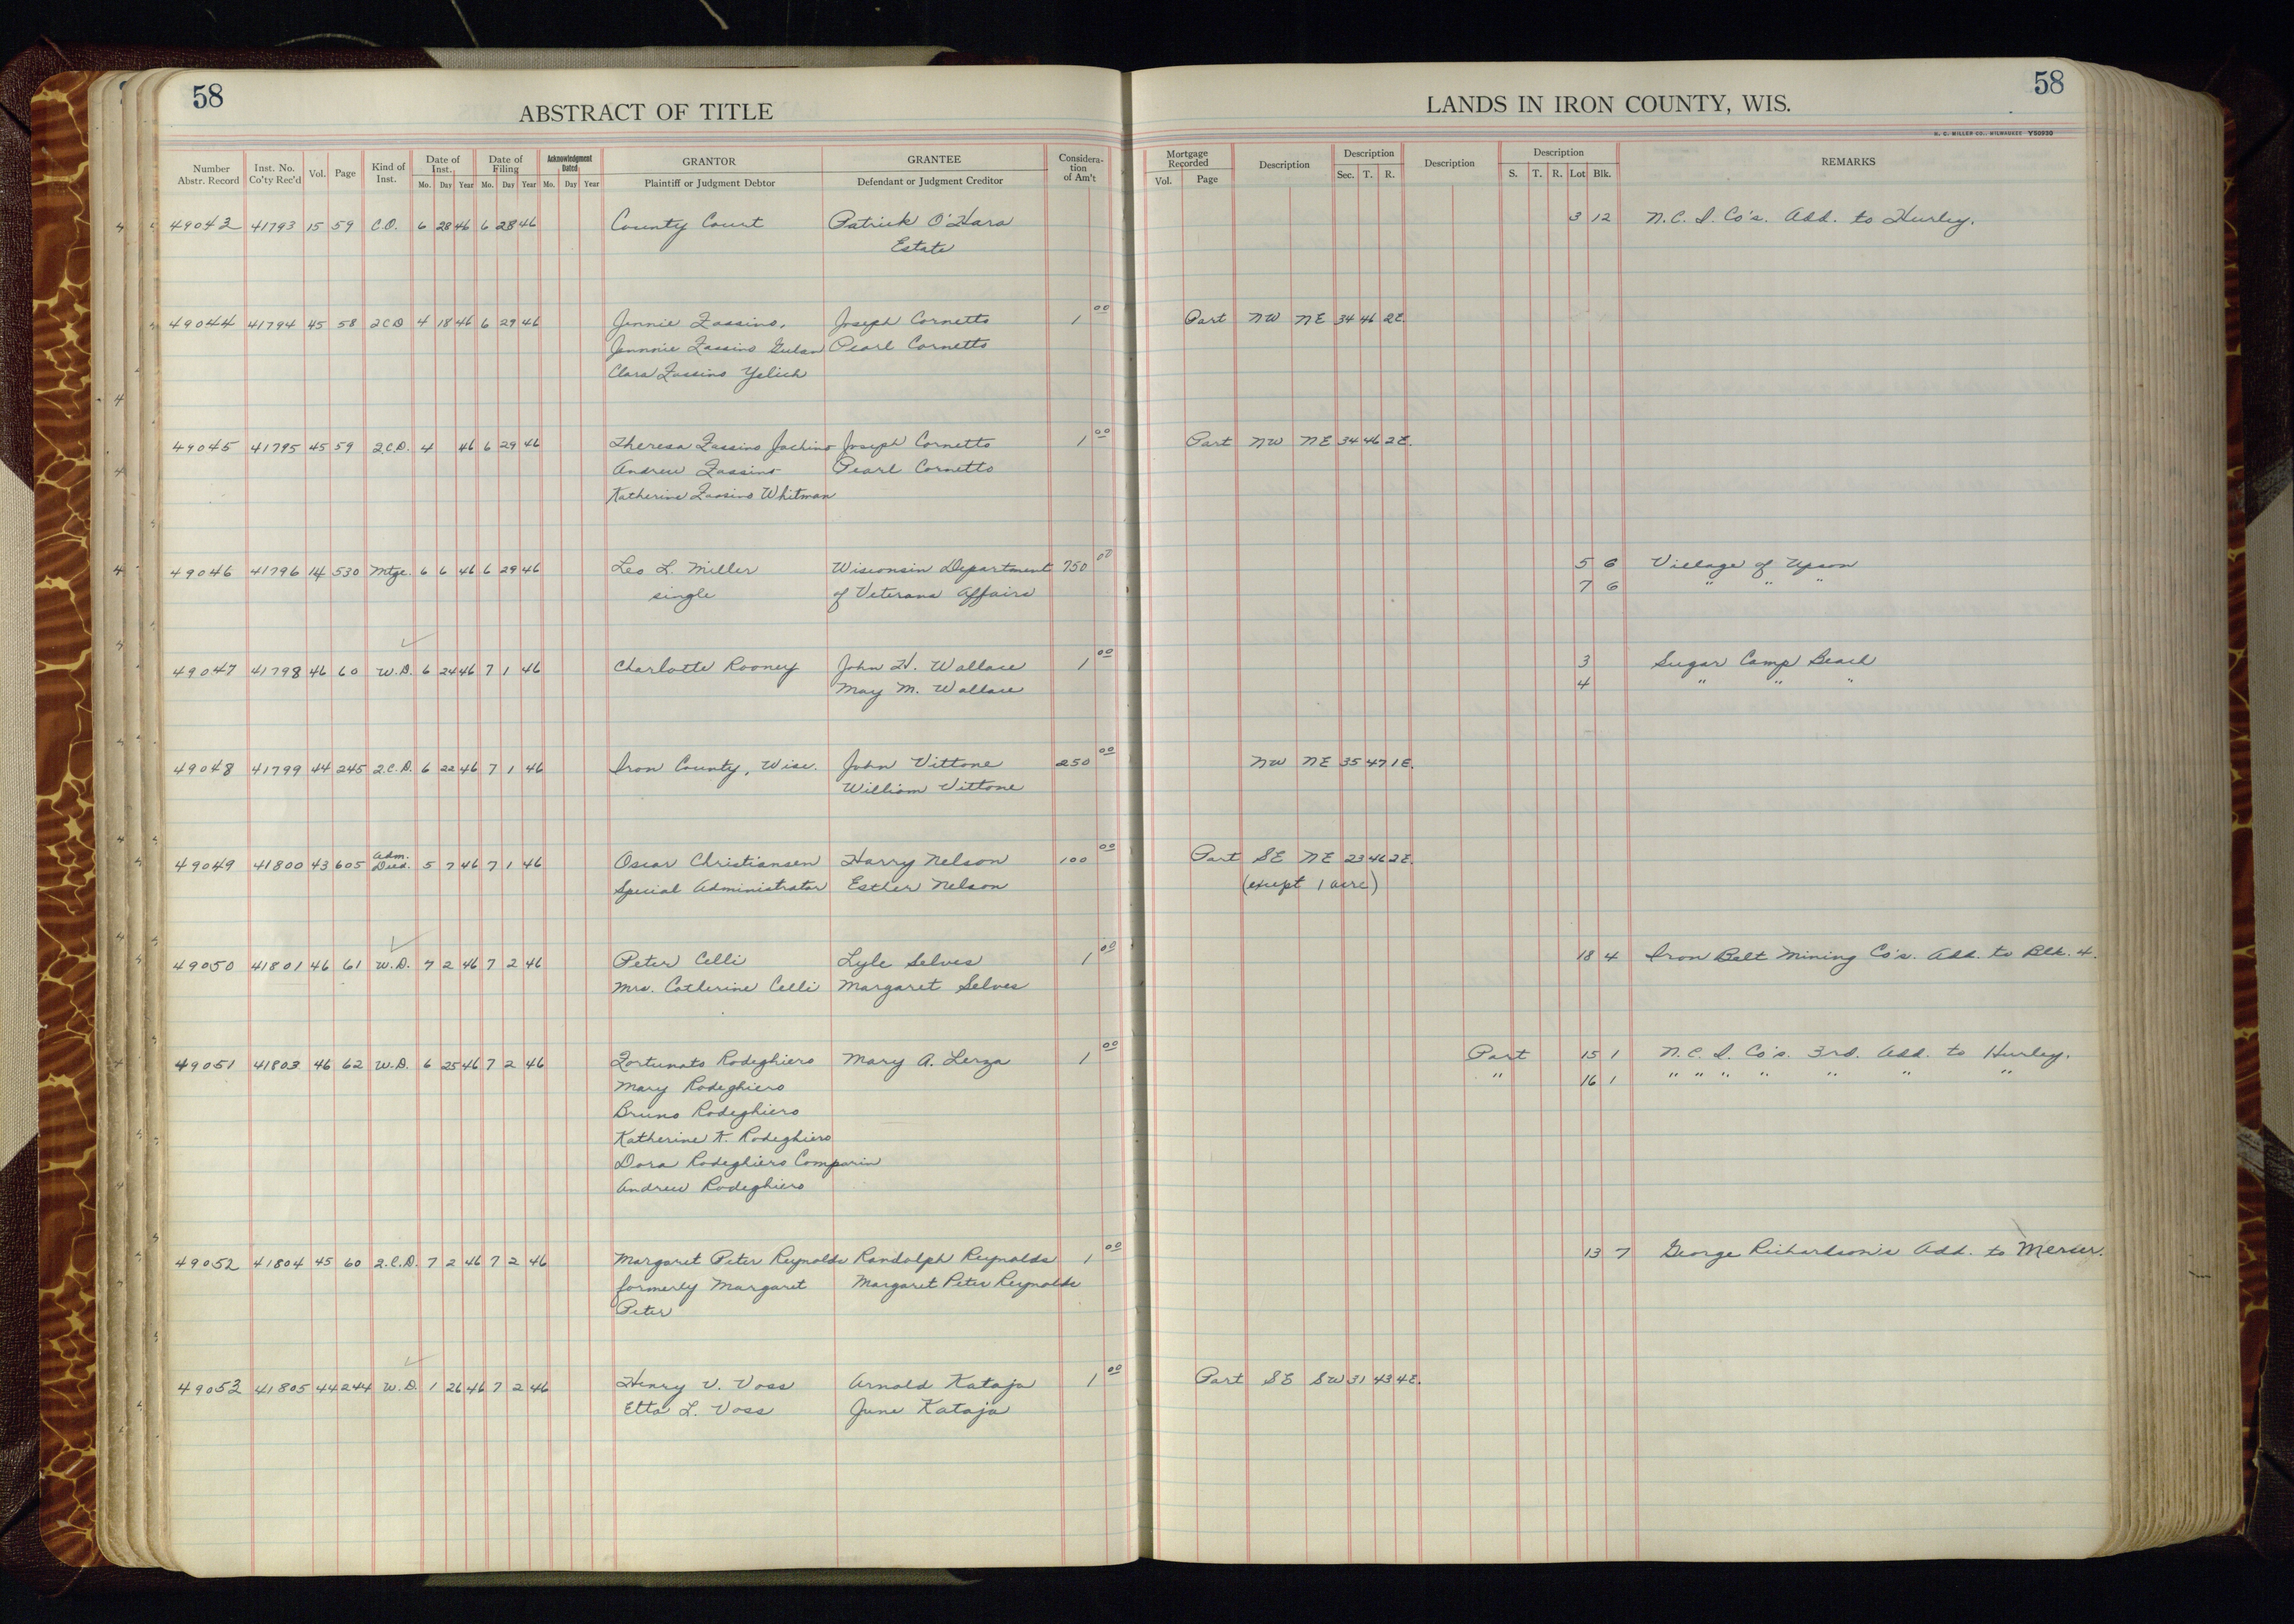 58
ABSTRACT OF TITLE
Number Abstr. Record Inst. No. Co'ty Rec'd Vol. Page Kind of Inst. Date of Inst. Mo. Day Year Date of Filing Mo. Day Year Acknowledgment Dated Mo. Day Year GRANTOR Plaintiff or Judgment Debtor GRANTEE Defendant or Judgment Creditor Considera-tion of Am't
LANDS IN IRON COUNTY, WIS.
58
H. C. MILLER CO., MILWAUKEE Y50930
Mortgage Recorded Vol. Page Description Description Sec. T. R. Description Description S. T. R. Lot Blk. REMARKS
49043 41793 15 59 C.O. 6 28 46 6 28 46 County Court Patrick O'Hara 3 12 N.C.I. Co's. Add. to Hurley.
Estate
49044 41794 45 58 2CD 4 18 46 6 29 46 Jennie Zassino, Joseph Cornetto 1 00 Part NW NE 34 46 2E.
Jennnie Zassino Pearl Cornetto
Clara Zassino Yelich
49045 41795 45 59 2.C.D. 4 46 6 29 46 Theresa Zassino Jachino Joseph Cornetto 1 00 Part NW NE 34 46 2E.
Andrew Zassino Pearl Cornetto
Katherine Zassino Whitman
49046 41796 14 530 Mtge. 6 6 46 6 29 46 Leo L. Miller Wisconsin Department 750 00 5 6 Village of Upson
single of Veterans Affairs 7 6 " " "
49047 41798 46 60 W.D. 6 24 46 7 1 46 Charlotte Rooney John H. Wallace 1 00 3 Sugar Camp Beach
May M. Wallace 4 " " "
49048 41799 44 245 2.C.D. 6 22 46 7 1 46 Iron County, Wisc. John Vittone 250 00 NW NE 35 47 1E.
William Vittone
49049 41800 43 605 Adm. Deed. 5 7 46 7 1 46 Oscar Christiansen Harry Nelson 100 00 Part SE NE 23 46 2E.
Special Administrator Esther Nelson (except 1 acre)
49050 41801 46 61 W.D. 7 2 46 7 2 46 Peter Celli Lyle Selves 1 00 18 4 Iron Belt Mining Co's. Add. to Blk. 4.
Mrs. Catherine Celli Margaret Selves
49051 41803 46 62 W.D. 6 25 46 7 2 46 Fortunato Rodeghiero Mary A. Lerza 1 00 Part 15 1 N.C.I. Co's. 3rd. Add. to Hurley.
Mary Rodeghiero " 16 1 " " " " " " "
Bruno Rodeghiero
Katherine K. Rodeghiero
Dora Rodeghiero Comparin
Andrew Rodeghiero
49052 41804 45 60 2.C.D. 7 2 46 7 2 46 Margaret Peter Reynolds Randolph Reynolds 1 00 13 7 George Richardson's Add. to Mercer.
formerly Margaret Margaret Peter Reynolds
Peter
49053 41805 44 244 W.D. 1 26 46 7 2 46 Henry V. Voss Arnold Kataja 1 00 Part SE SW 31 43 4E.
Etta L. Voss June Kataja